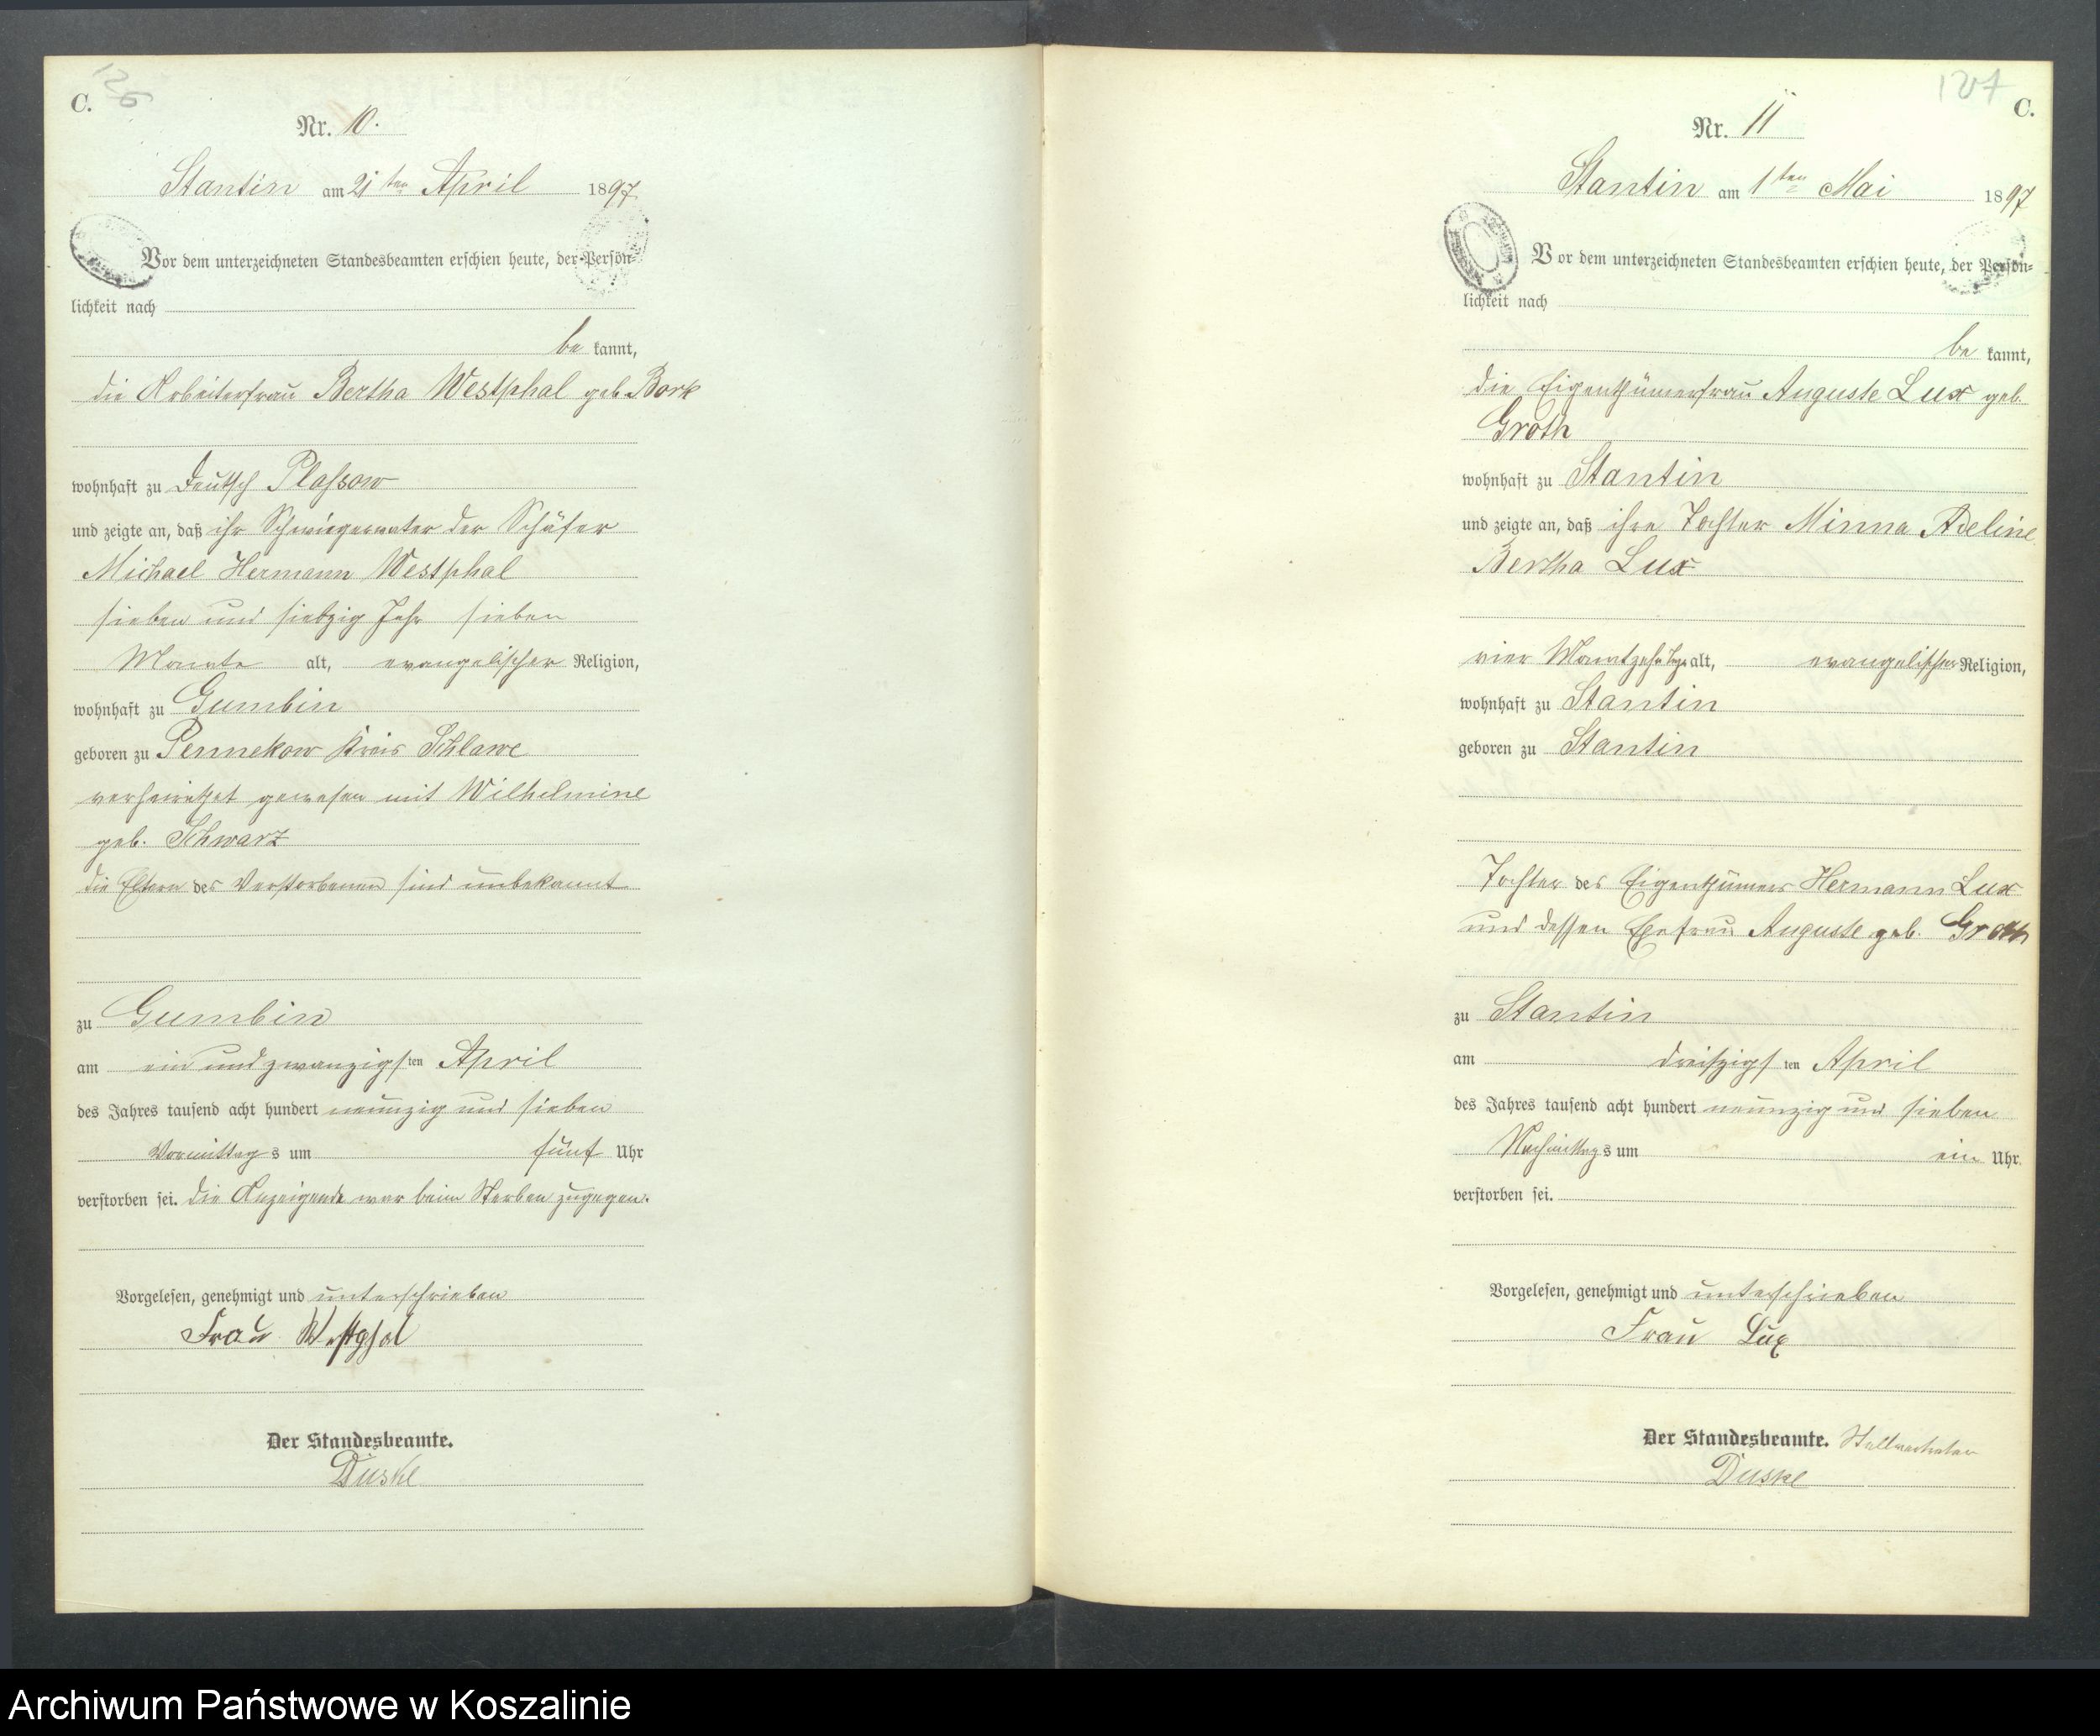 C.
126
Nr. 10.
Stantin am 21 ten April 1897
Vor dem unterzeichneten Standesbeamten erschien heute, der Persön-
lichkeit nach
be kannt,
die Arbeiterfrau Bertha Westphal geb. Bork
wohnhaft zu Deutsch Plassow
und zeigte an, daß ihr Schwiegervater der Schäfer
Michael Hermann Westphal
sieben und siebzig Jahr sieben
Monate alt, evangelischer Religion,
wohnhaft zu Gumbin
geboren zu Pennekow Kreis Schlawe
verheirathet gewesen mit Wilhelmine
geb. Schwarz
die Eltern des Verstorbenen sind unbekannt
zu Gumbin
am ein und zwanzigsten April
des Jahres tausend acht hundert neunzig und sieben
Vormittags um fünf Uhr
verstorben sei. die Anzeigende war beim Sterben zugegen.
Vorgelesen, genehmigt und unterschrieben
Frau Westphal
Der Standesbeamte.
Duske
127
C.
Nr. 11
Stantin am 1 ten Mai 1897
Vor dem unterzeichneten Standesbeamten erschien heute, der Persön-
lichkeit nach
be kannt,
die Eigenthümerfrau Auguste Lux geb.
Groth
wohnhaft zu Stantin
und zeigte an, daß ihre Tochter Minna Adeline
Bertha Lux
vier Monat zehn Tage alt, evangelischer Religion,
wohnhaft zu Stantin
geboren zu Stantin
Tochter des Eigenthümers Hermann Lux
und dessen Ehefrau Auguste geb. Groth
zu Stantin
am dreißigsten April
des Jahres tausend acht hundert neunzig und sieben
Nachmittags um ein Uhr
verstorben sei.
Vorgelesen, genehmigt und unterschrieben
Frau Lux
Der Standesbeamte. Stellvertreter
Duske
Archiwum Państwowe w Koszalinie